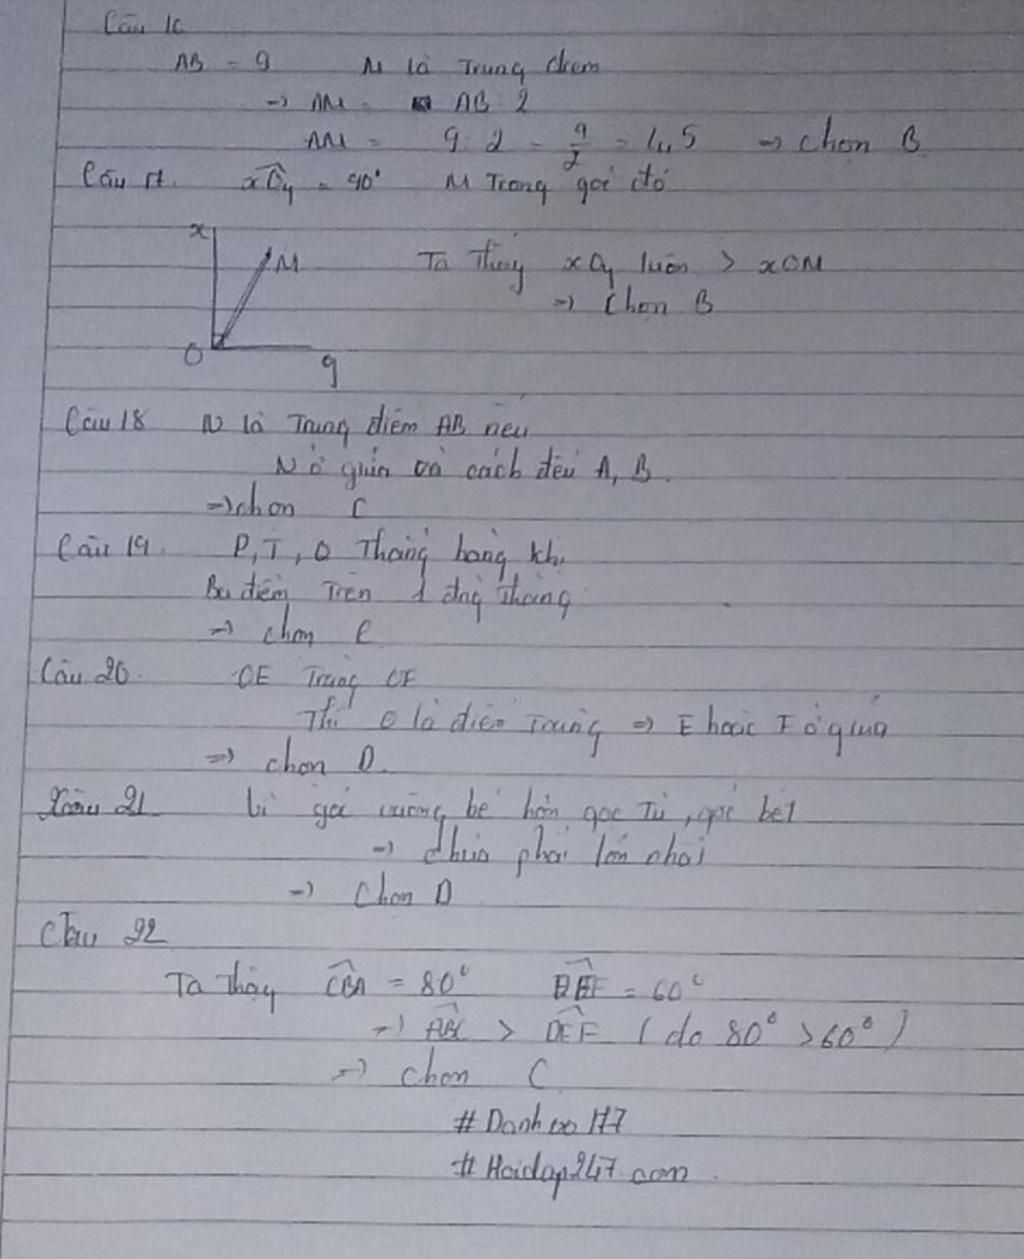 Câu 16
AB = 9 M là Trung điểm
=> AM = AB : 2
AM = 9 : 2 = 9/2 = 4,5 => chọn B
Câu 17. xOy = 90° M Trong góc đó
x
M Ta Thấy xOy luôn > xOM
=> Chọn B
O y
Câu 18 N là Trung điểm AB nếu
N ở giữa và cách đều A, B.
=> chọn C
Câu 19. P, T, O Thẳng hàng khi
Ba điểm Trên 1 đng thẳng
=> chọn C
Câu 20. OE Trùng OF
Thì O là điểm Trùng => E hoặc F ở giữa
=> chọn D.
Câu 21 Vì góc vuông bé hơn góc Tù, góc bẹt
=> chưa phải lớn nhất
=> Chọn D
Câu 22
Ta Thấy CBA = 80° DEF = 60°
=> ABC > DEF (do 80° > 60°)
=> chọn C
# Danhoo 177
# Hoidap247.com